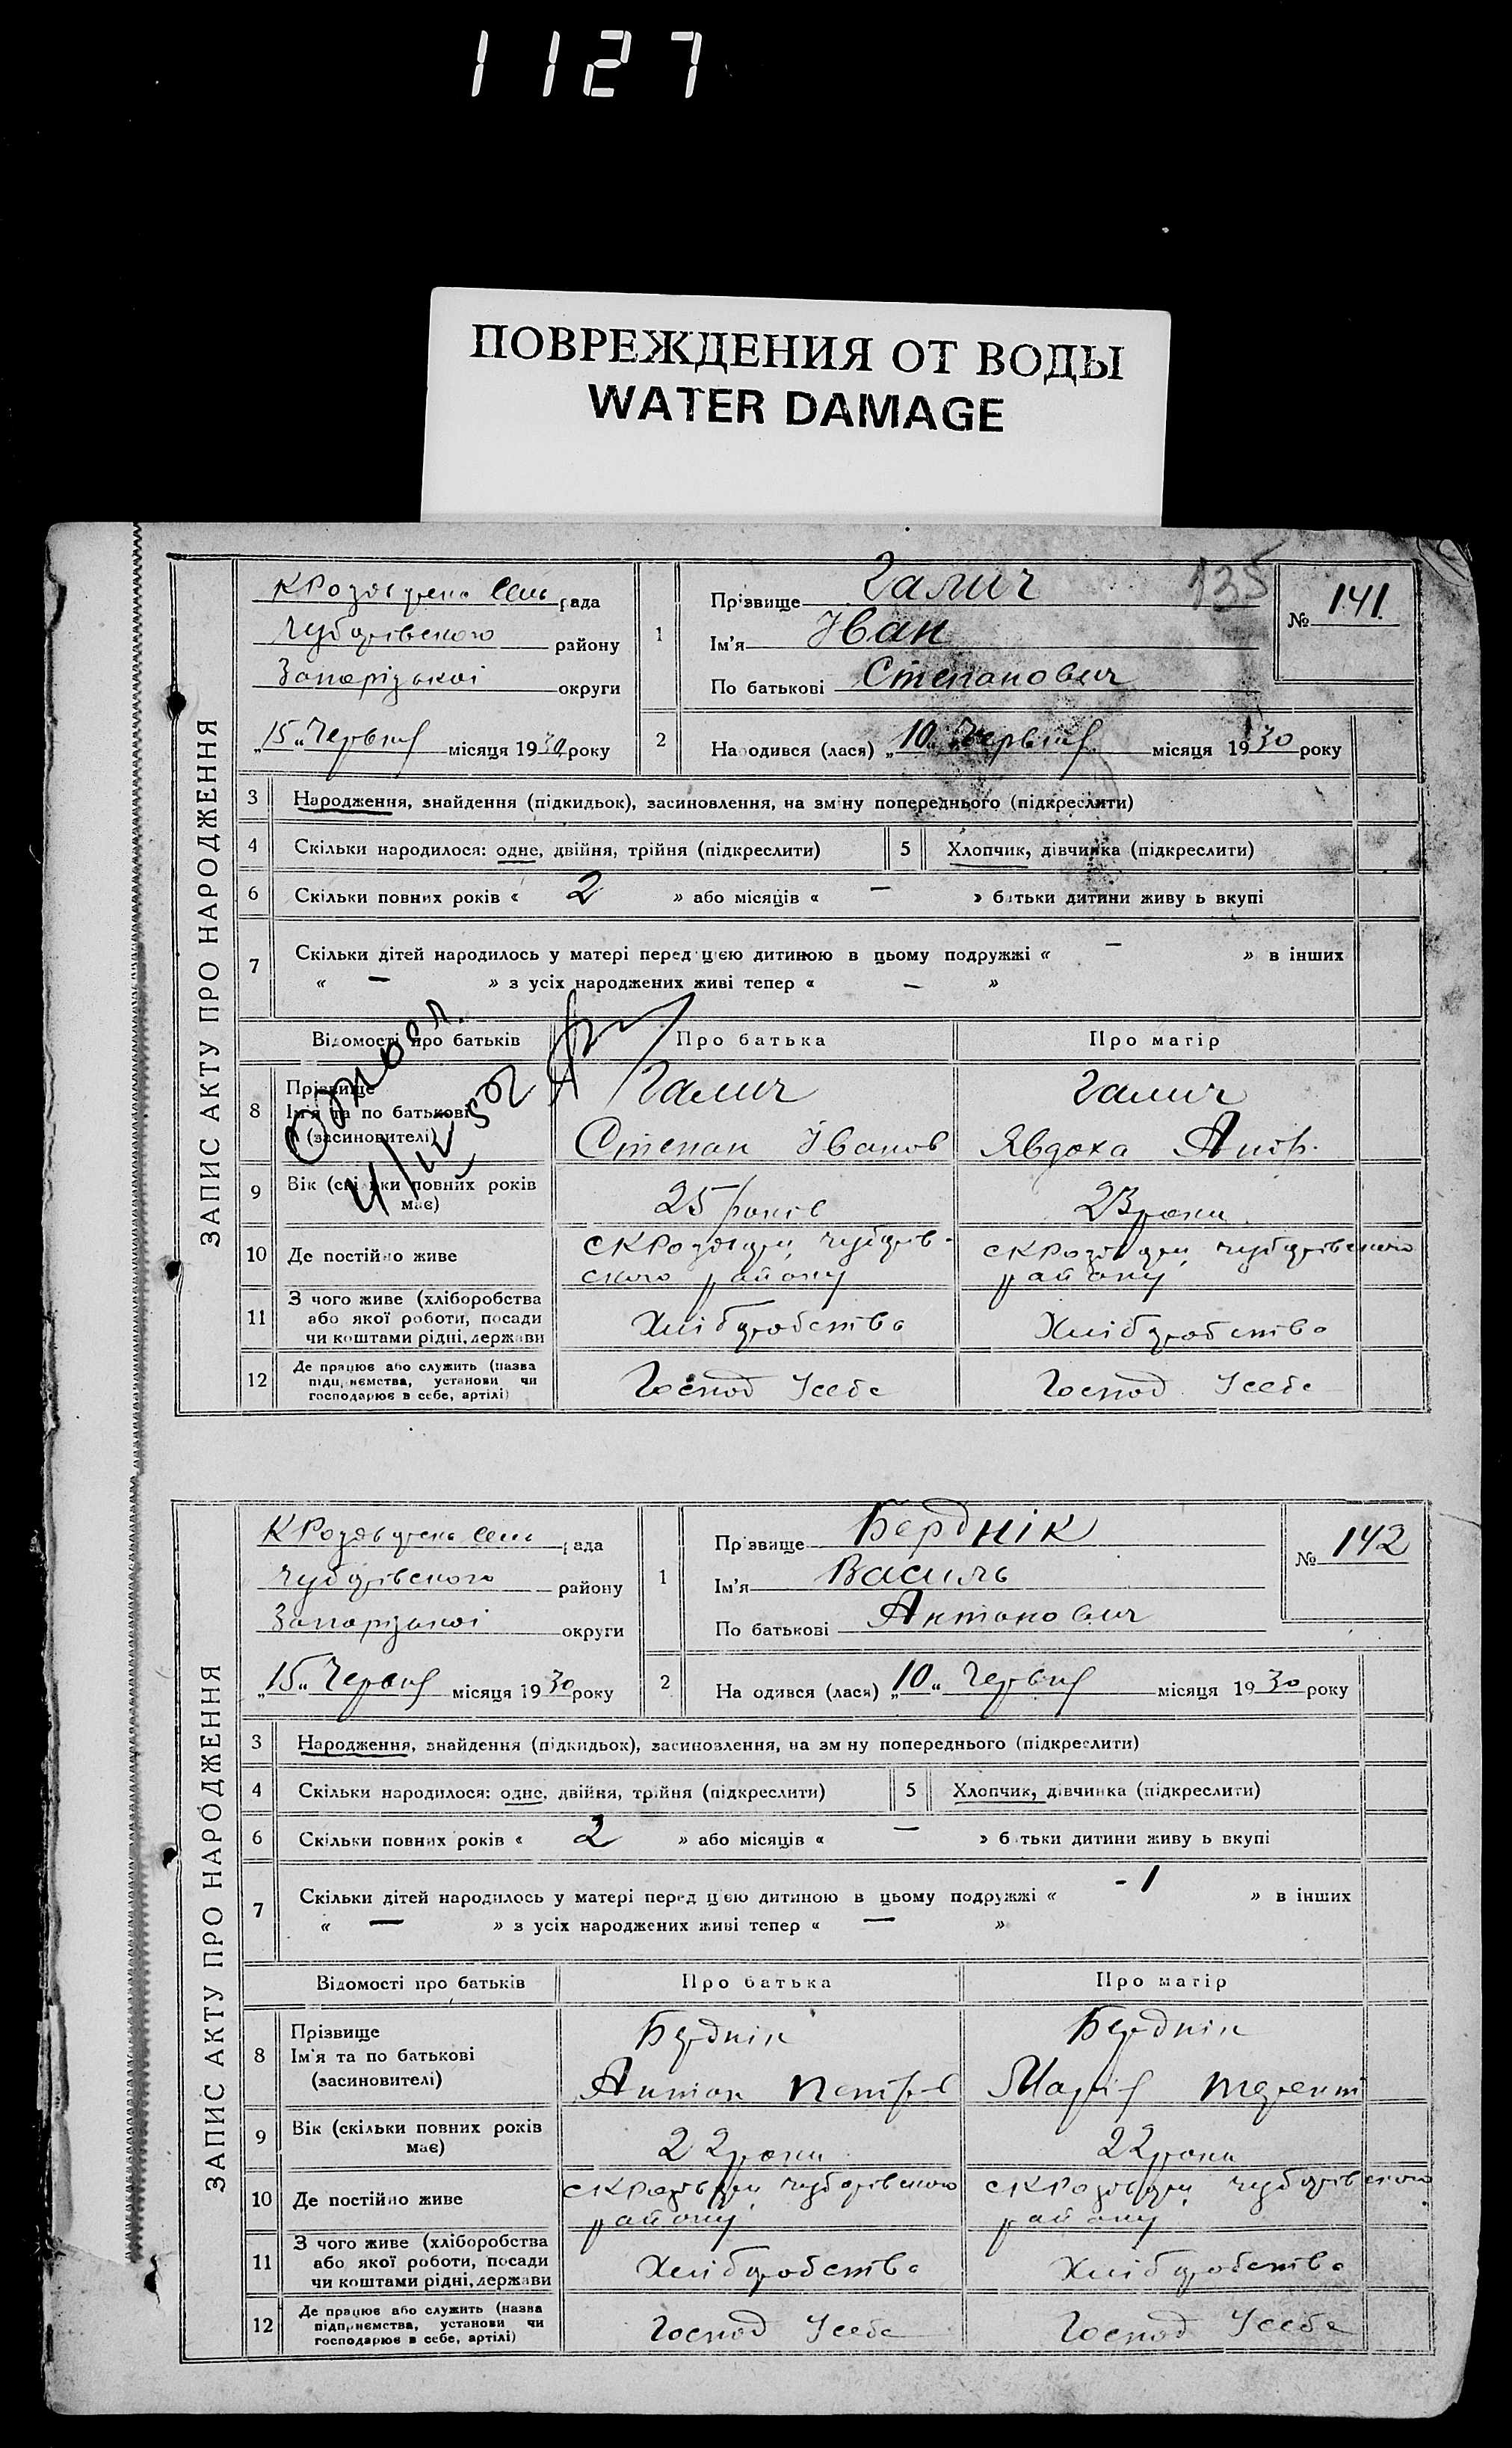 1127
ПОВРЕЖДЕНИЯ ОТ ВОДЫ
WATER DAMAGE
135
ЗАПИС АКТУ ПРО НАРОДЖЕННЯ
рада
Чубарівського району
Запорізької округи
„15“ Червня місяця 1930 року
№ 141
1 Прізвище Галич
Ім'я Іван
По батькові Степанович
2 Народився (лася) „10“ Червня місяця 1930 року
3 Народження, знайдення (підкидьок), засиновлення, на зміну попереднього (підкреслити)
4 Скільки народилося: одне, двійня, трійня (підкреслити) 5 Хлопчик, дівчинка (підкреслити)
6 Скільки повних років « 2 » або місяців « — » батьки дитини живуть вкупі
7 Скільки дітей народилось у матері перед цією дитиною в цьому подружжі « — » в інших
« — » з усіх народжених живі тепер « — »
Відомості про батьків Про батька Про матір
8 Прізвище Галич Галич
Ім'я та по батькові
(засиновителі) Степан Іванов Явдоха
9 Вік (скільки повних років має) 25 років 23 роки
10 Де постійно живе Чубарів- Чубарівського
ского району району
11 З чого живе (хліборобства
або якої роботи, посади Хліборобство Хліборобство
чи коштами рідні, держави
12 Де працює або служить (назва
підприємства, установи чи Господ Усебе Господ Усебе
господарює в себе, артілі)
ЗАПИС АКТУ ПРО НАРОДЖЕННЯ
рада
Чубарівського району
Запорізької округи
„15“ Червня місяця 1930 року
№ 142
1 Прізвище Берднік
Ім'я Василь
По батькові Антонович
2 Народився (лася) „10“ Червня місяця 1930 року
3 Народження, знайдення (підкидьок), засиновлення, на зміну попереднього (підкреслити)
4 Скільки народилося: одне, двійня, трійня (підкреслити) 5 Хлопчик, дівчинка (підкреслити)
6 Скільки повних років « 2 » або місяців « — » батьки дитини живуть вкупі
7 Скільки дітей народилось у матері перед цією дитиною в цьому подружжі « - 1 » в інших
« — » з усіх народжених живі тепер « — »
Відомості про батьків Про батька Про матір
8 Прізвище Берднік Берднік
Ім'я та по батькові
(засиновителі) Антон Петров Марія Терент
9 Вік (скільки повних років має) 22 роки 22 роки
10 Де постійно живе Чубарівського Чубарівського
району району
11 З чого живе (хліборобства
або якої роботи, посади Хліборобство Хліборобство
чи коштами рідні, держави
12 Де працює або служить (назва
підприємства, установи чи Господ Усебе Господ Усебе
господарює в себе, артілі)